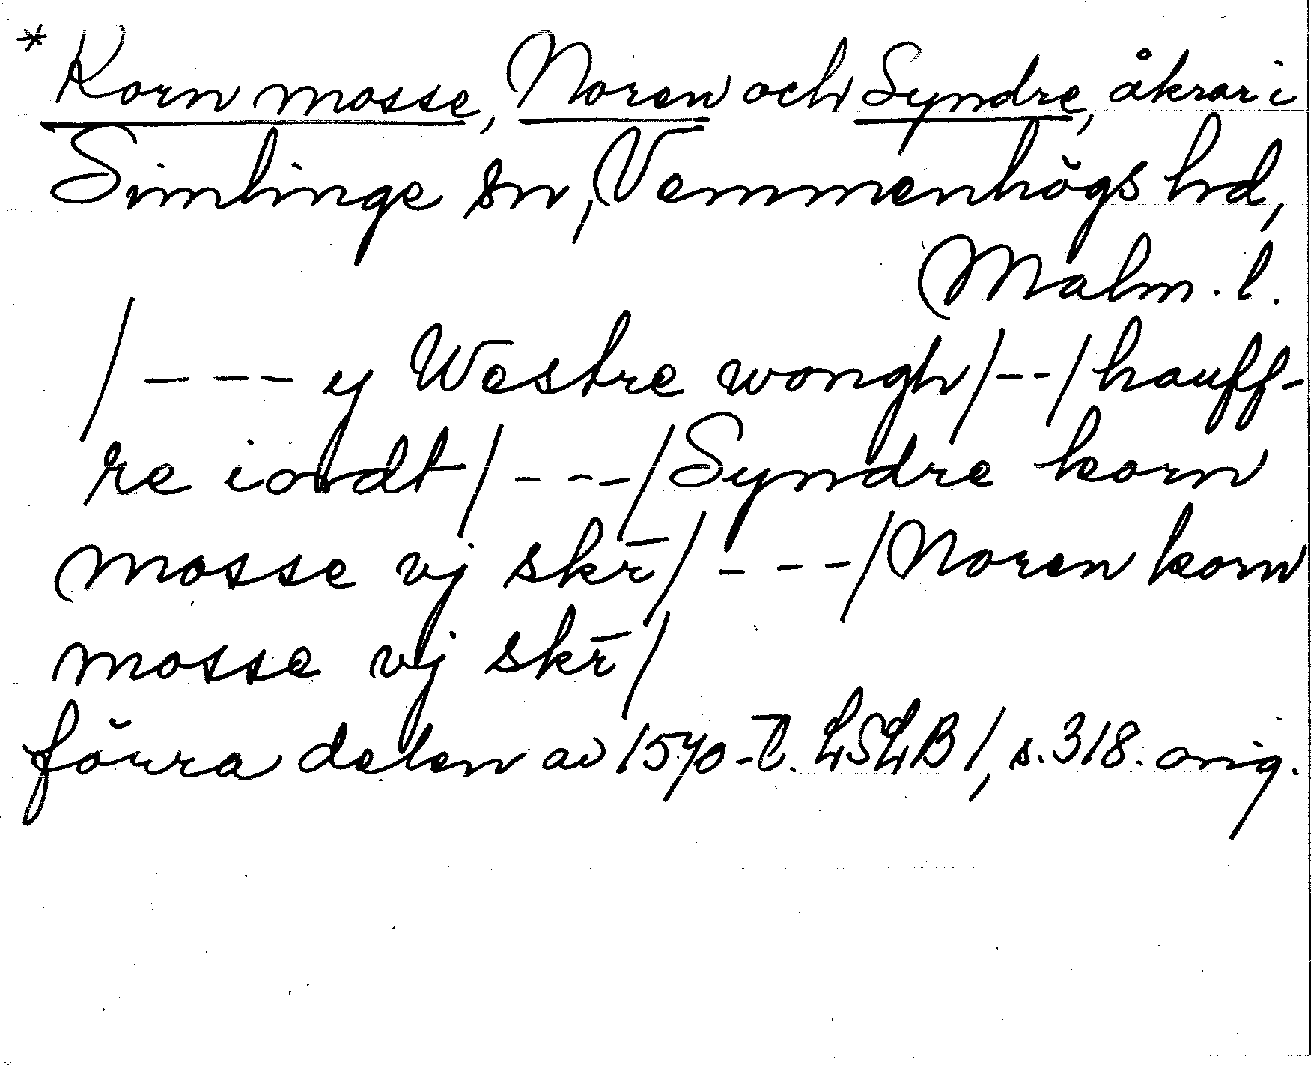 * Korn mosse, Noren och Syndre, åkrar i
Simlinge sn, Vemmenhögs hd,
Malm. l.
/ – – – – y Westre wongh / – – / hauff-
re iordt / – – – / Syndre korn
mosse vj skr̄ / – – – / Noren korn
mosse vj skr̄ /
förra delen av 1570-t. LSLB 1, s. 318. orig.